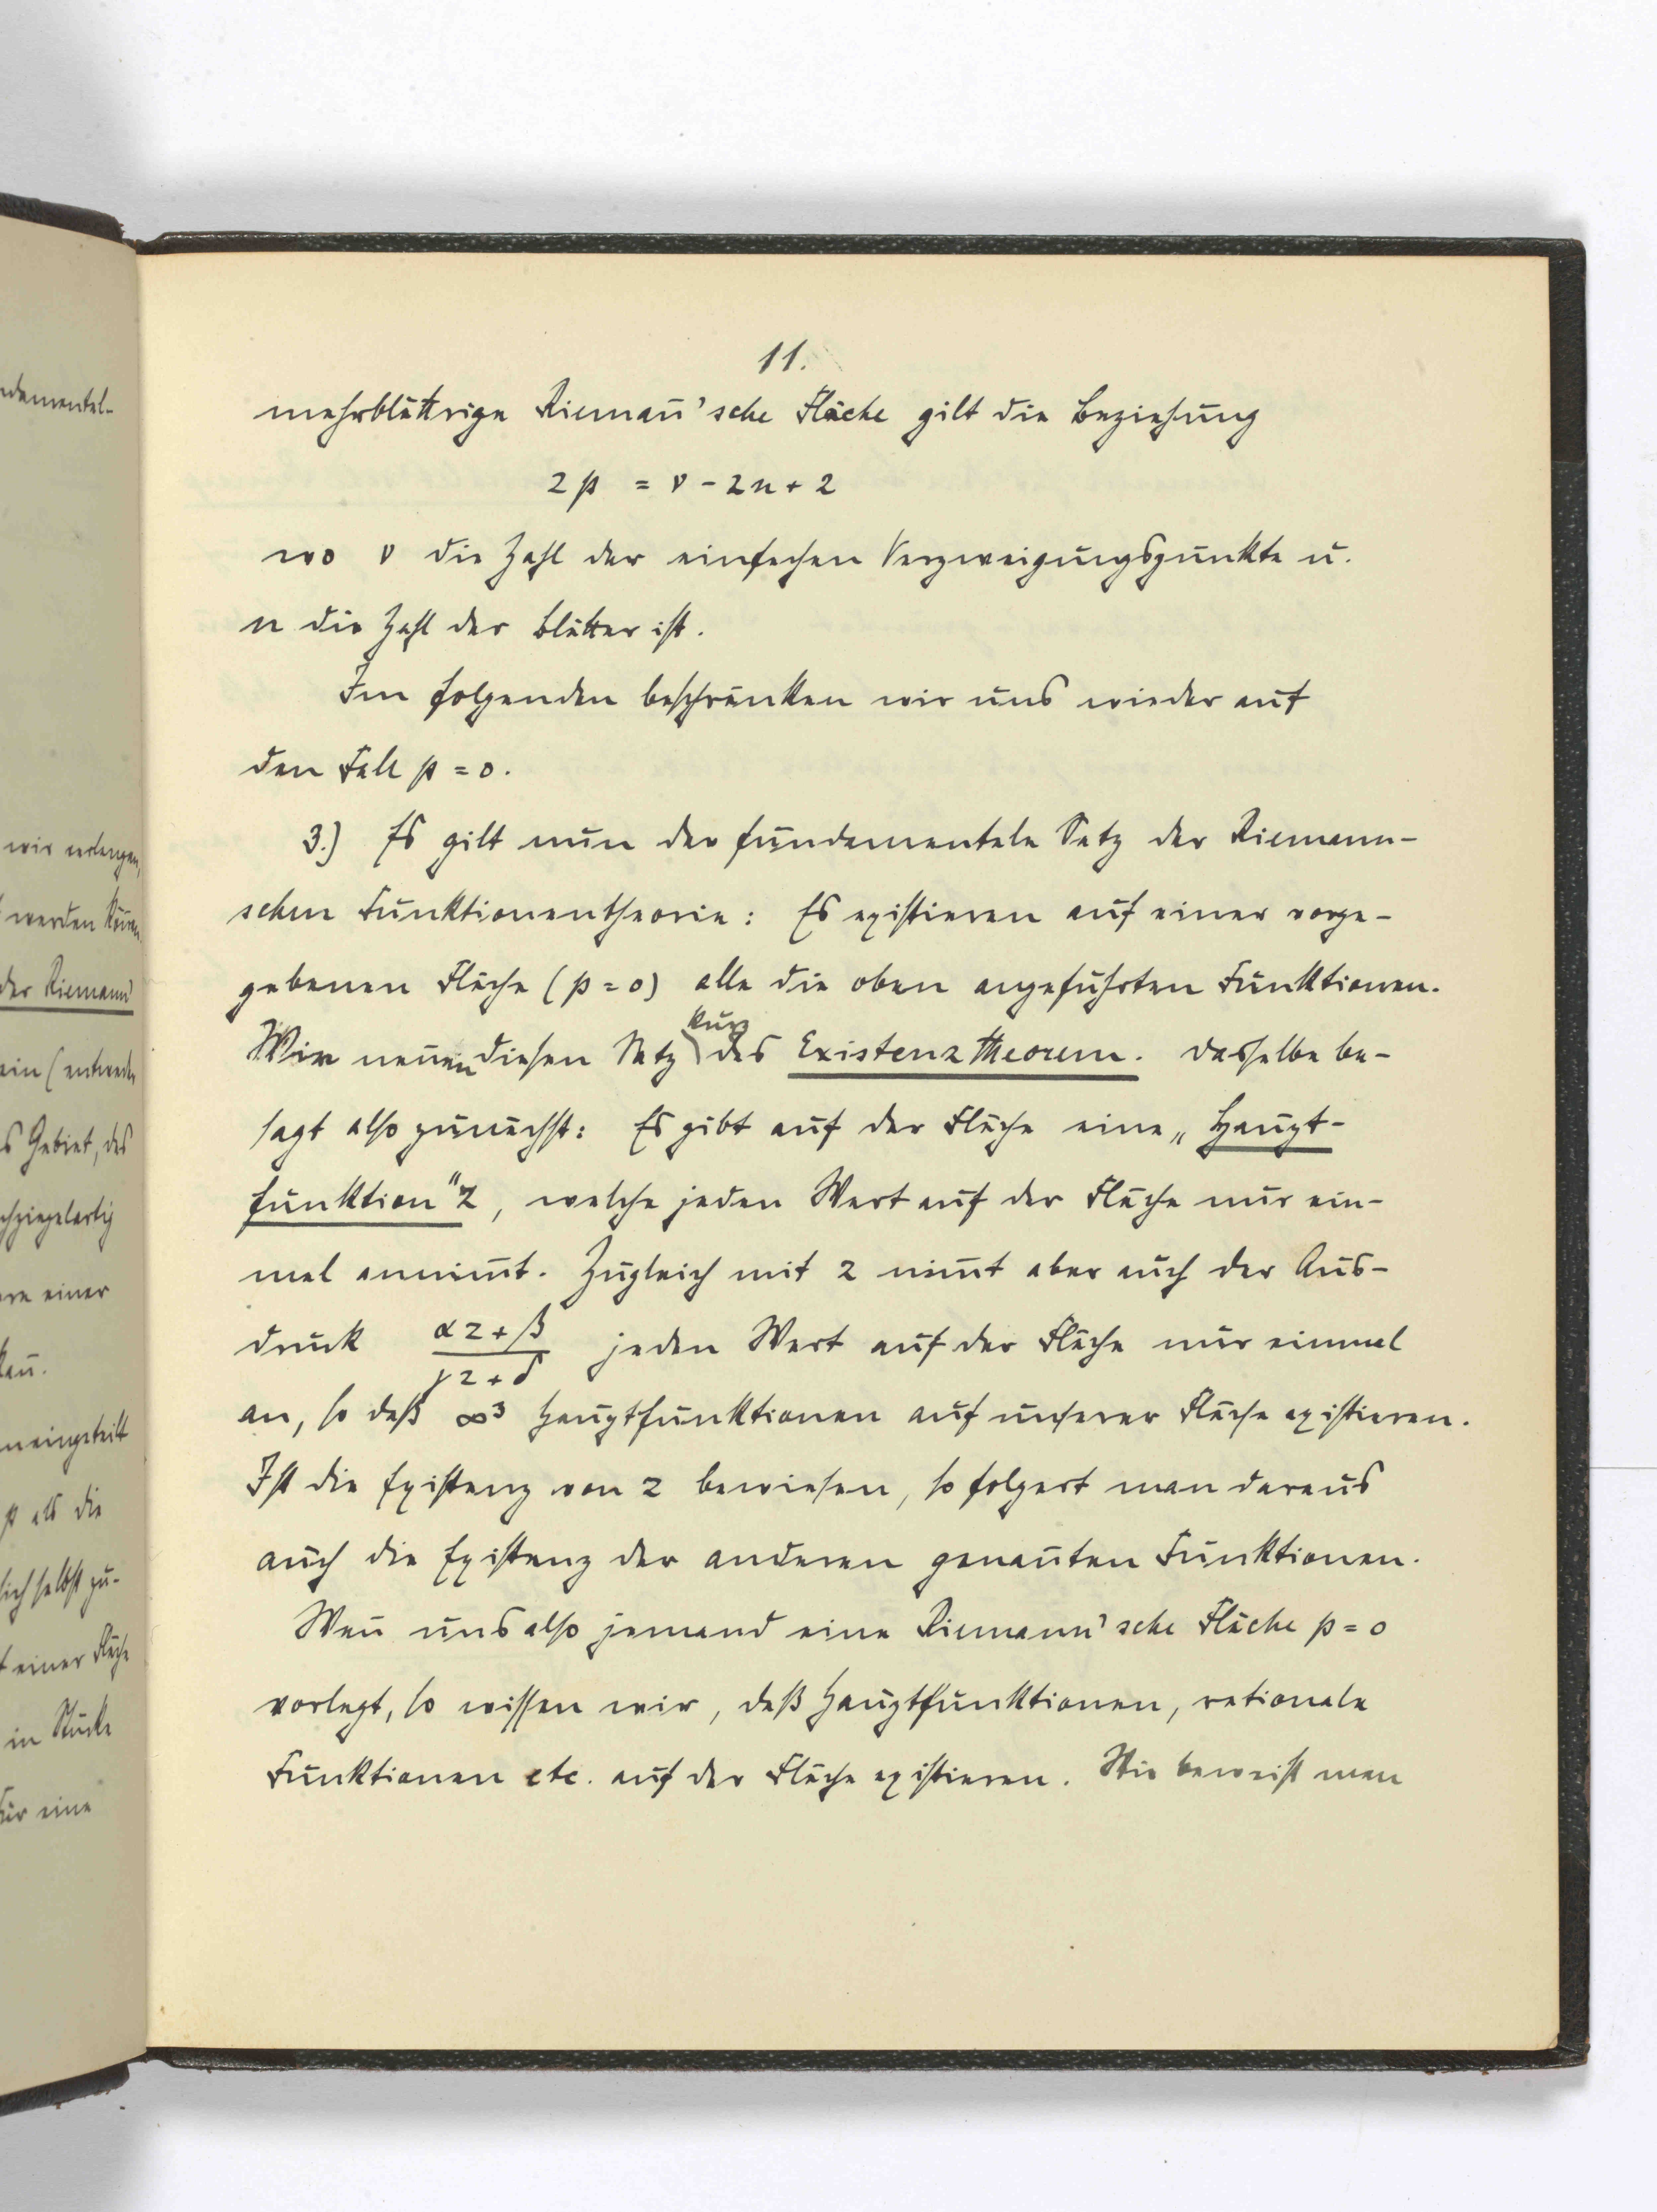 11.
mehrblättrige Riemañ'sche Fläche gilt die Beziehung
2p = ν - 2n + 2
wo ν die Zahl der einfachen Verzweigungspunkte u.
n die Zahl der Blätter ist.
Im folgenden beschränken wir uns wieder auf
den Fall p = 0.
3.) Es gilt nun der fundamentale Satz der Riemann-
schen Funktionentheorie: Es existieren auf einer vorge-
gebenen Fläche (p = 0) alle die oben angeführten Funktionen.
Wir neñen diesen Satz kurz das Existenztheorem. Dasselbe be-
sagt also zunächst: Es gibt auf der Fläche eine „Haupt-
funktion" z, welche jeden Wert auf der Fläche nur ein-
mal annim̄t. Zugleich mit z nim̄t aber auch der Aus-
druck (αz + β)/(γz + δ) jeden Wert auf der Fläche nur einmal
an, so daß ∞³ Hauptfunktionen auf unserer Fläche existieren.
Ist die Existenz von z bewiesen, so folgert man daraus
auch die Existenz der anderen genañten Funktionen.
Weñ uns also jemand eine Riemann'sche Fläche p = 0
vorlegt, so wissen wir, daß Hauptfunktionen, rationale
Funktionen etc. auf der Fläche existieren. Wie beweist man
ndamental-
wir verlangen,
werden köñen.
der Riemann'
ein (entweder
s Gebiet, das
einer
eingeteilt
p als die
sich selbst zu-
einer Fläche
in Stücke
Für eine